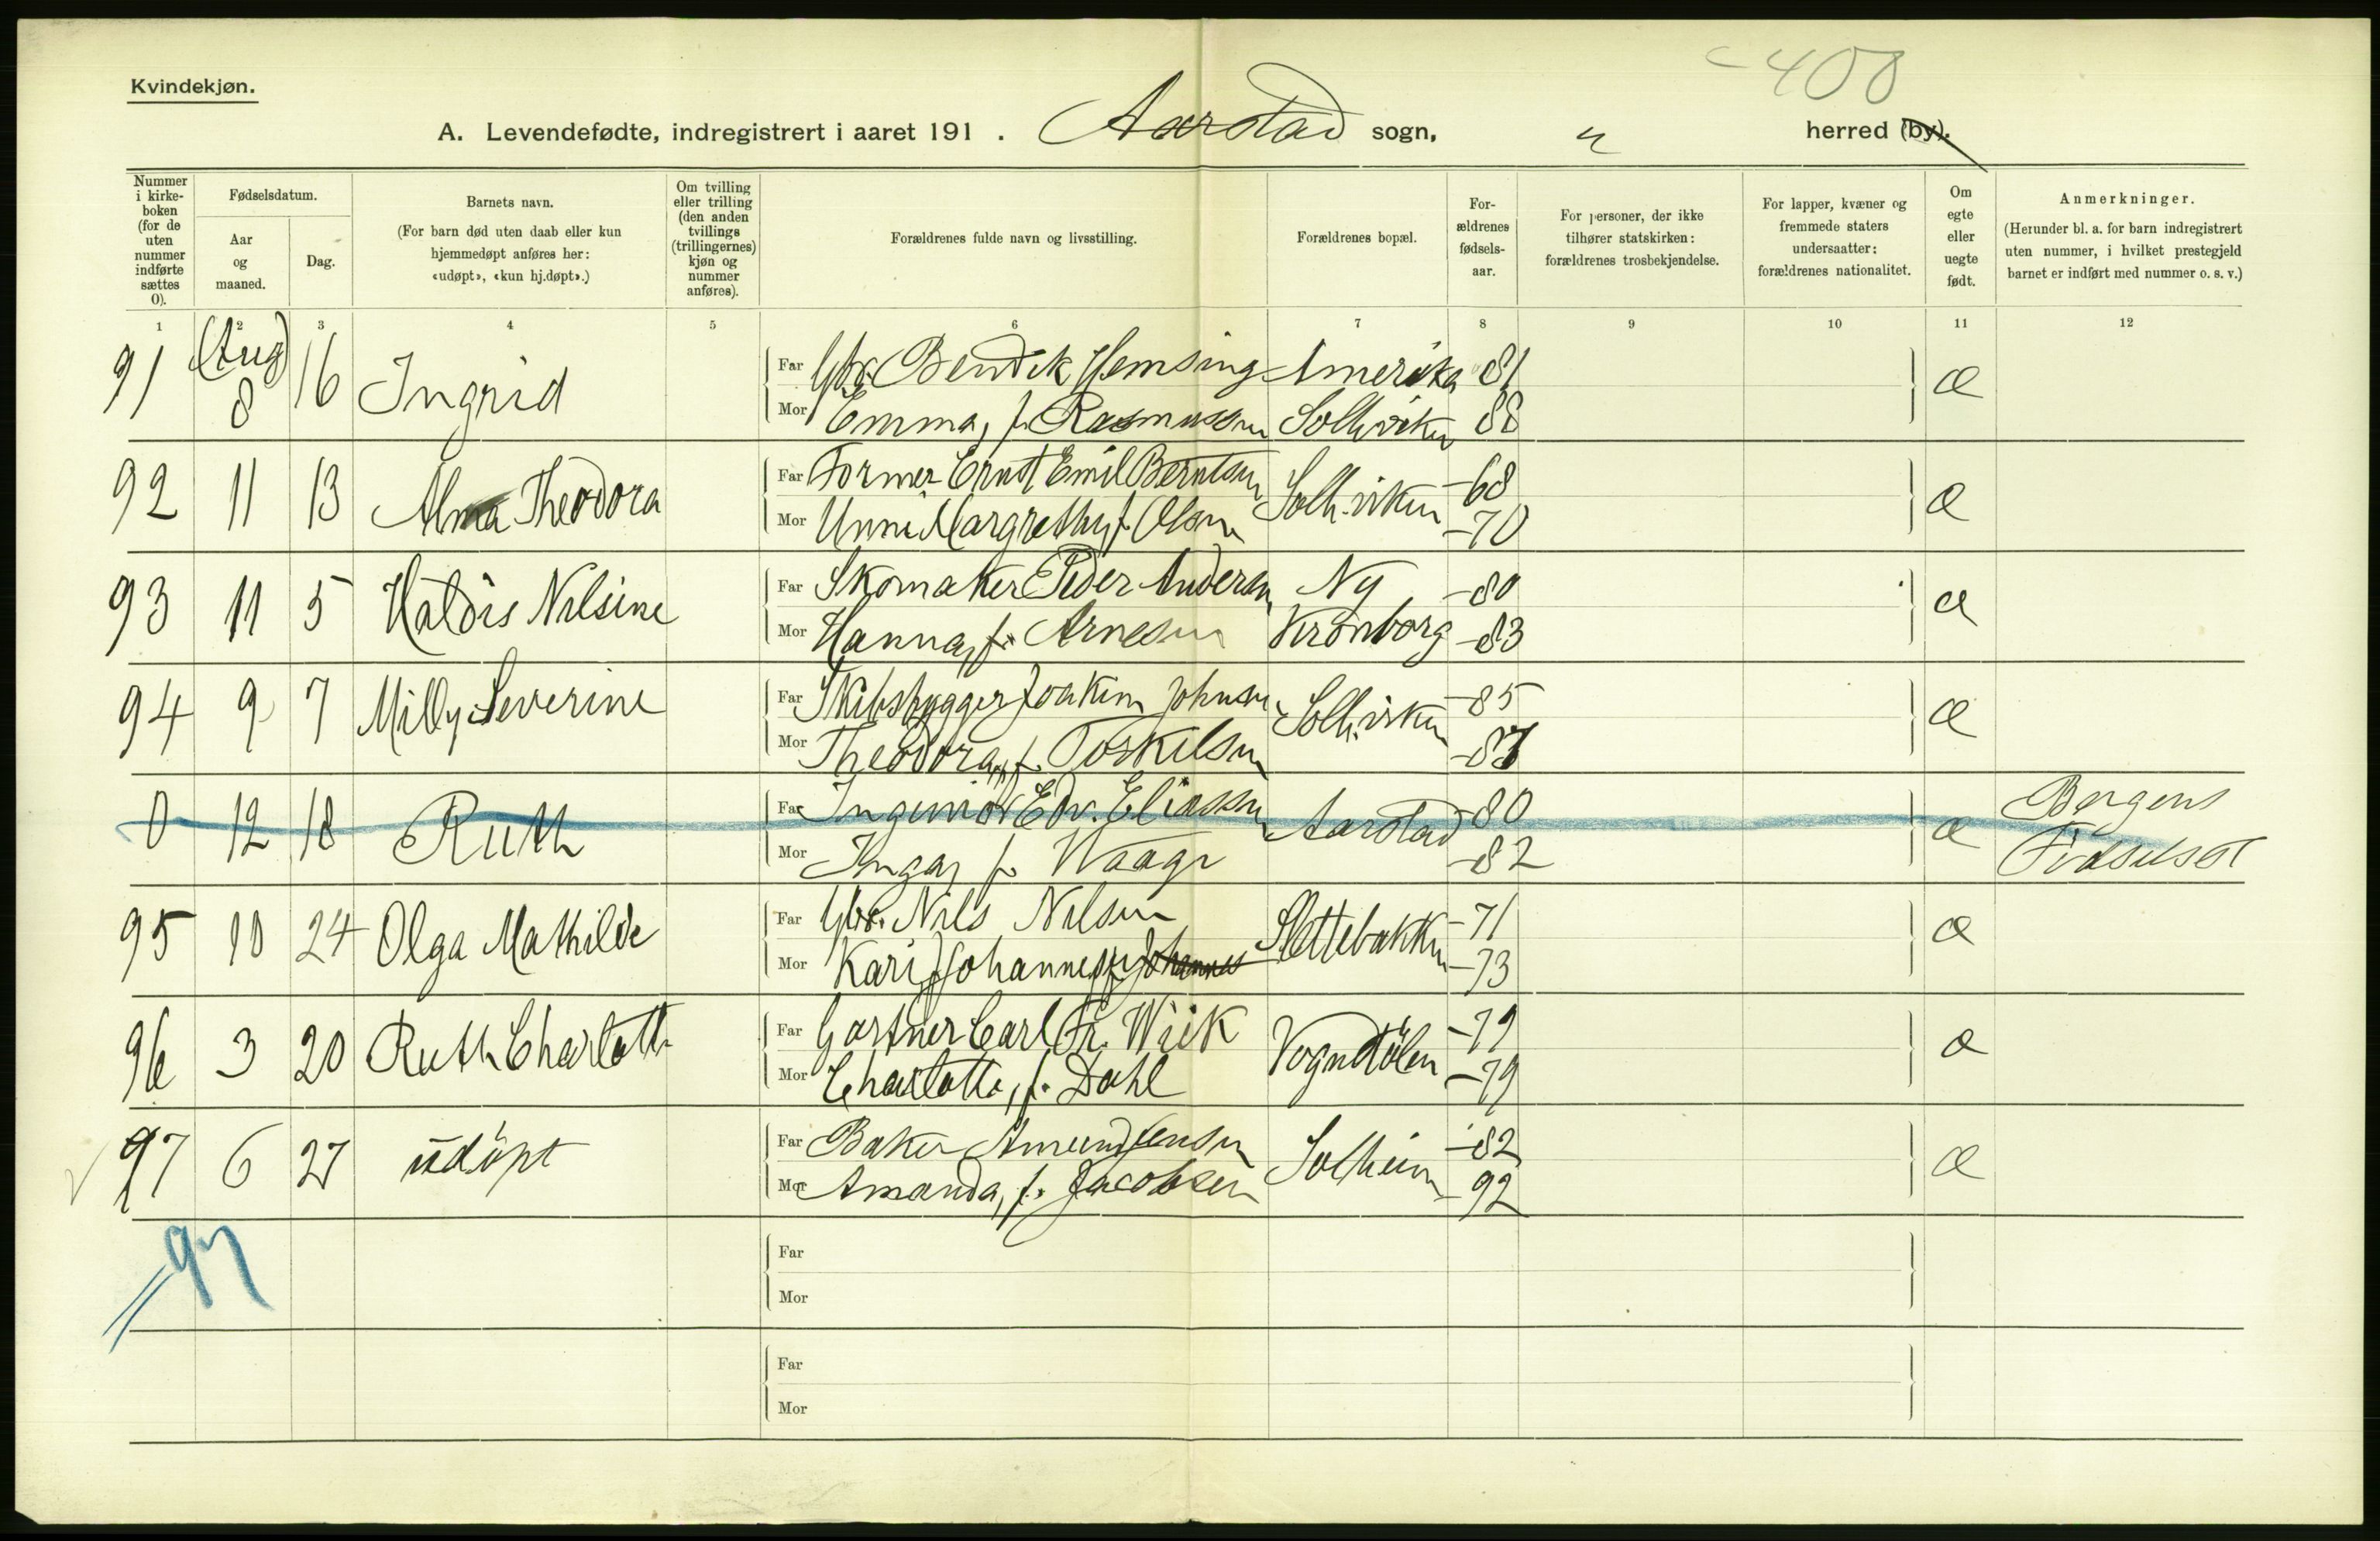 Kvindekjøn.
408
A. Levendefødte, indregistrert i aaret 191 . Aarstad sogn, " herred (by).
Nummer i kirke- boken (for de uten nummer indførte sættes 0).
Fødselsdatum.
Aar og maaned.
Dag.
Barnets navn.
(For barn død uten daab eller kun hjemmedøpt anføres her: «udøpt», «kun hj.døpt».)
Om tvilling eller trilling (den anden tvillings (trillingernes) kjøn og nummer anføres).
Forældrenes fulde navn og livsstilling.
Forældrenes bopæl.
For- ældrenes fødsels- aar.
For personer, der ikke tilhører statskirken: forældrenes trosbekjendelse.
For lapper, kvæner og fremmede staters undersaatter: forældrenes nationalitet.
Om egte eller uegte født.
Anmerkninger.
(Herunder bl. a. for barn indregistrert uten nummer, i hvilket prestegjeld barnet er indført med nummer o. s. v.)
1 2 3 4 5 6 7 8 9 10 11 12
91 (Aug) 8 16 Ingrid Far Gbr. Bendik Hemsing Amerika 81 æ
Mor Emma, f. Rasmussen Solh.viken 88
92 11 13 Alma Theodora Far Former Ernst Emil Berntsen Solh.viken -68 æ
Mor Unni Margrethe, f. Olsen -70
93 11 5 Haldis Nilsine Far Skomaker Peder Andersen Ny -80 æ
Mor Hanna, f. Arnesen Kronborg -83
94 9 7 Milly Severine Far Skibsbygger Joakim Johnsen Solh.viken -85 æ
Mor Theodora, f. Torkilsen -87
0 12 18 Ruth Far Ingeniør Edv. Eliassen Aarstad -80 æ Bergens
Mor Inga, f. Waage -82 Fødselsst
95 10 24 Olga Mathilde Far Gbr. Nils Nilsen Slettebakken -71 æ
Mor Kari Johannes f. Johannes -73
96 3 20 Ruth Charlotte Far Gartner Carl Fr. Wiik Vognstölen -79 æ
Mor Charlotte, f. Dahl -79
97 6 27 udöpt Far Baker Amund Jensen Solheim -82 æ
Mor Amanda, f. Jacobsen -92
97
Far
Mor
Far
Mor